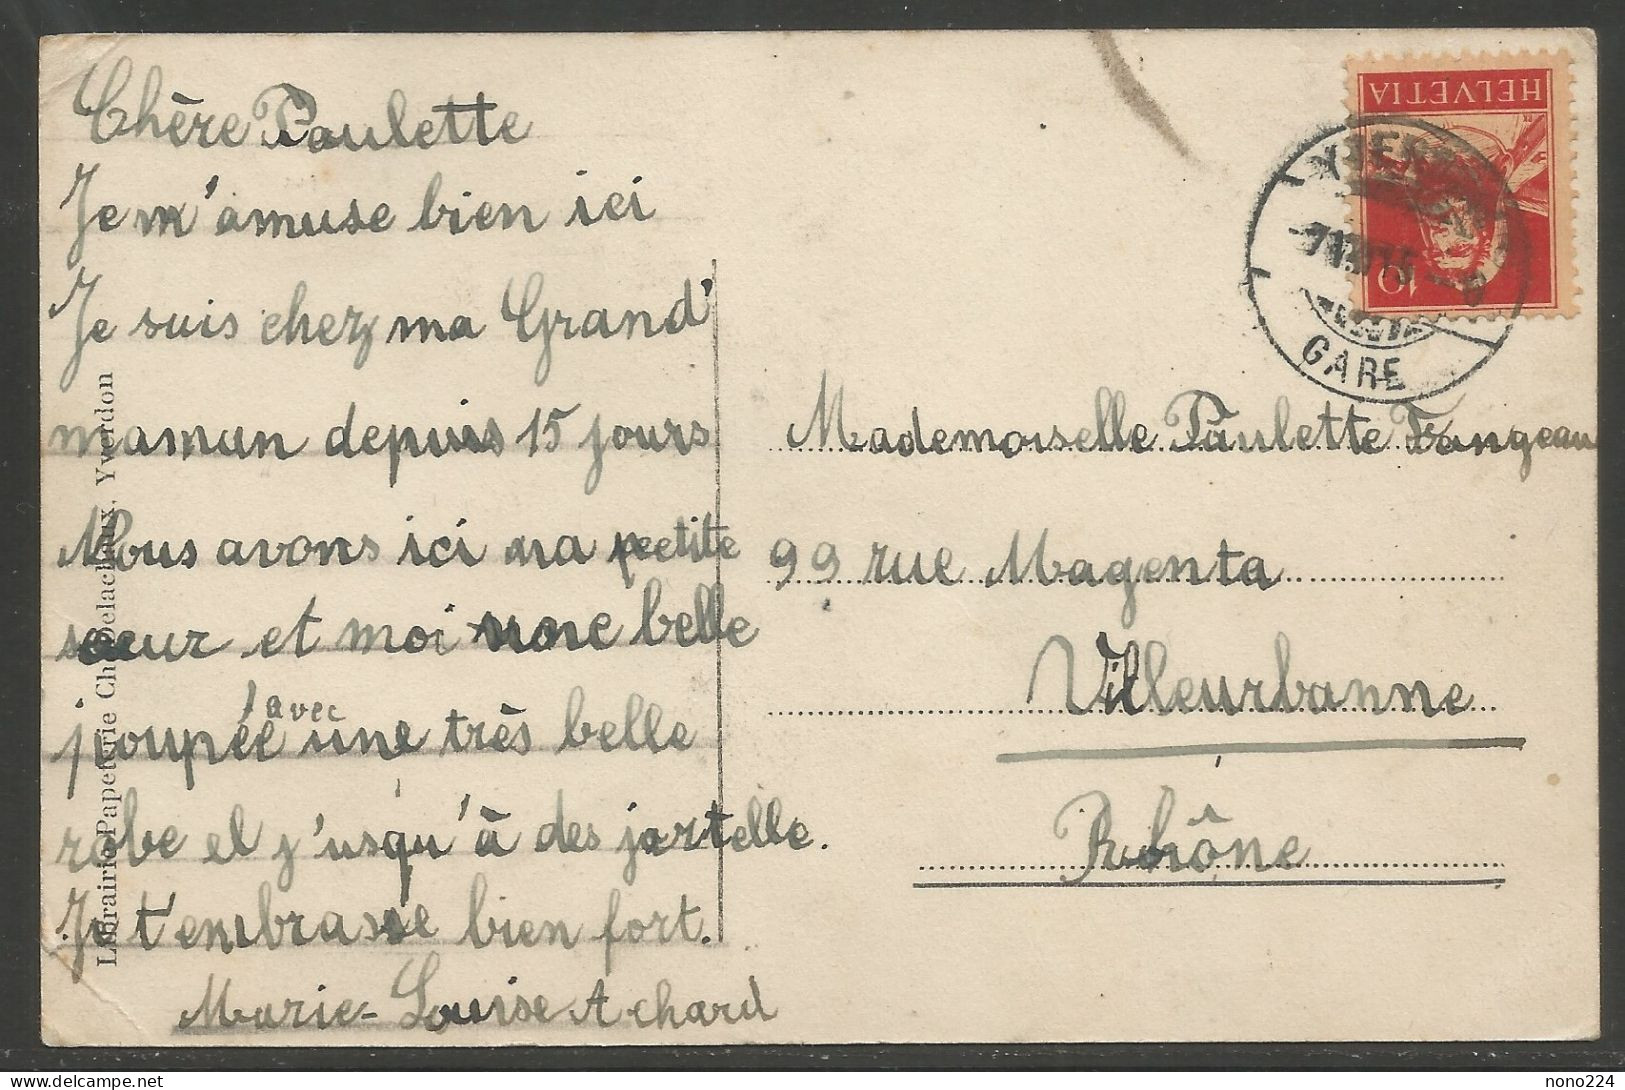 Chère Paulette
Je m'amuse bien ici
Je suis chez ma Grand'
maman depuis 15 jours
Nous avons ici ma petite
soeur et moi une belle
poupée avec une très belle
robe et j'usqu'à des jartelle.
Je t'embrasse bien fort.
Marie-Louise Achard
Librairie-Papeterie Ch. Delachaux, Yverdon
HELVETIA
10
GARE
Mademoiselle Paulette Frangeau
99 rue Magenta
Villeurbanne
Rhône
delcampe.net
nono224